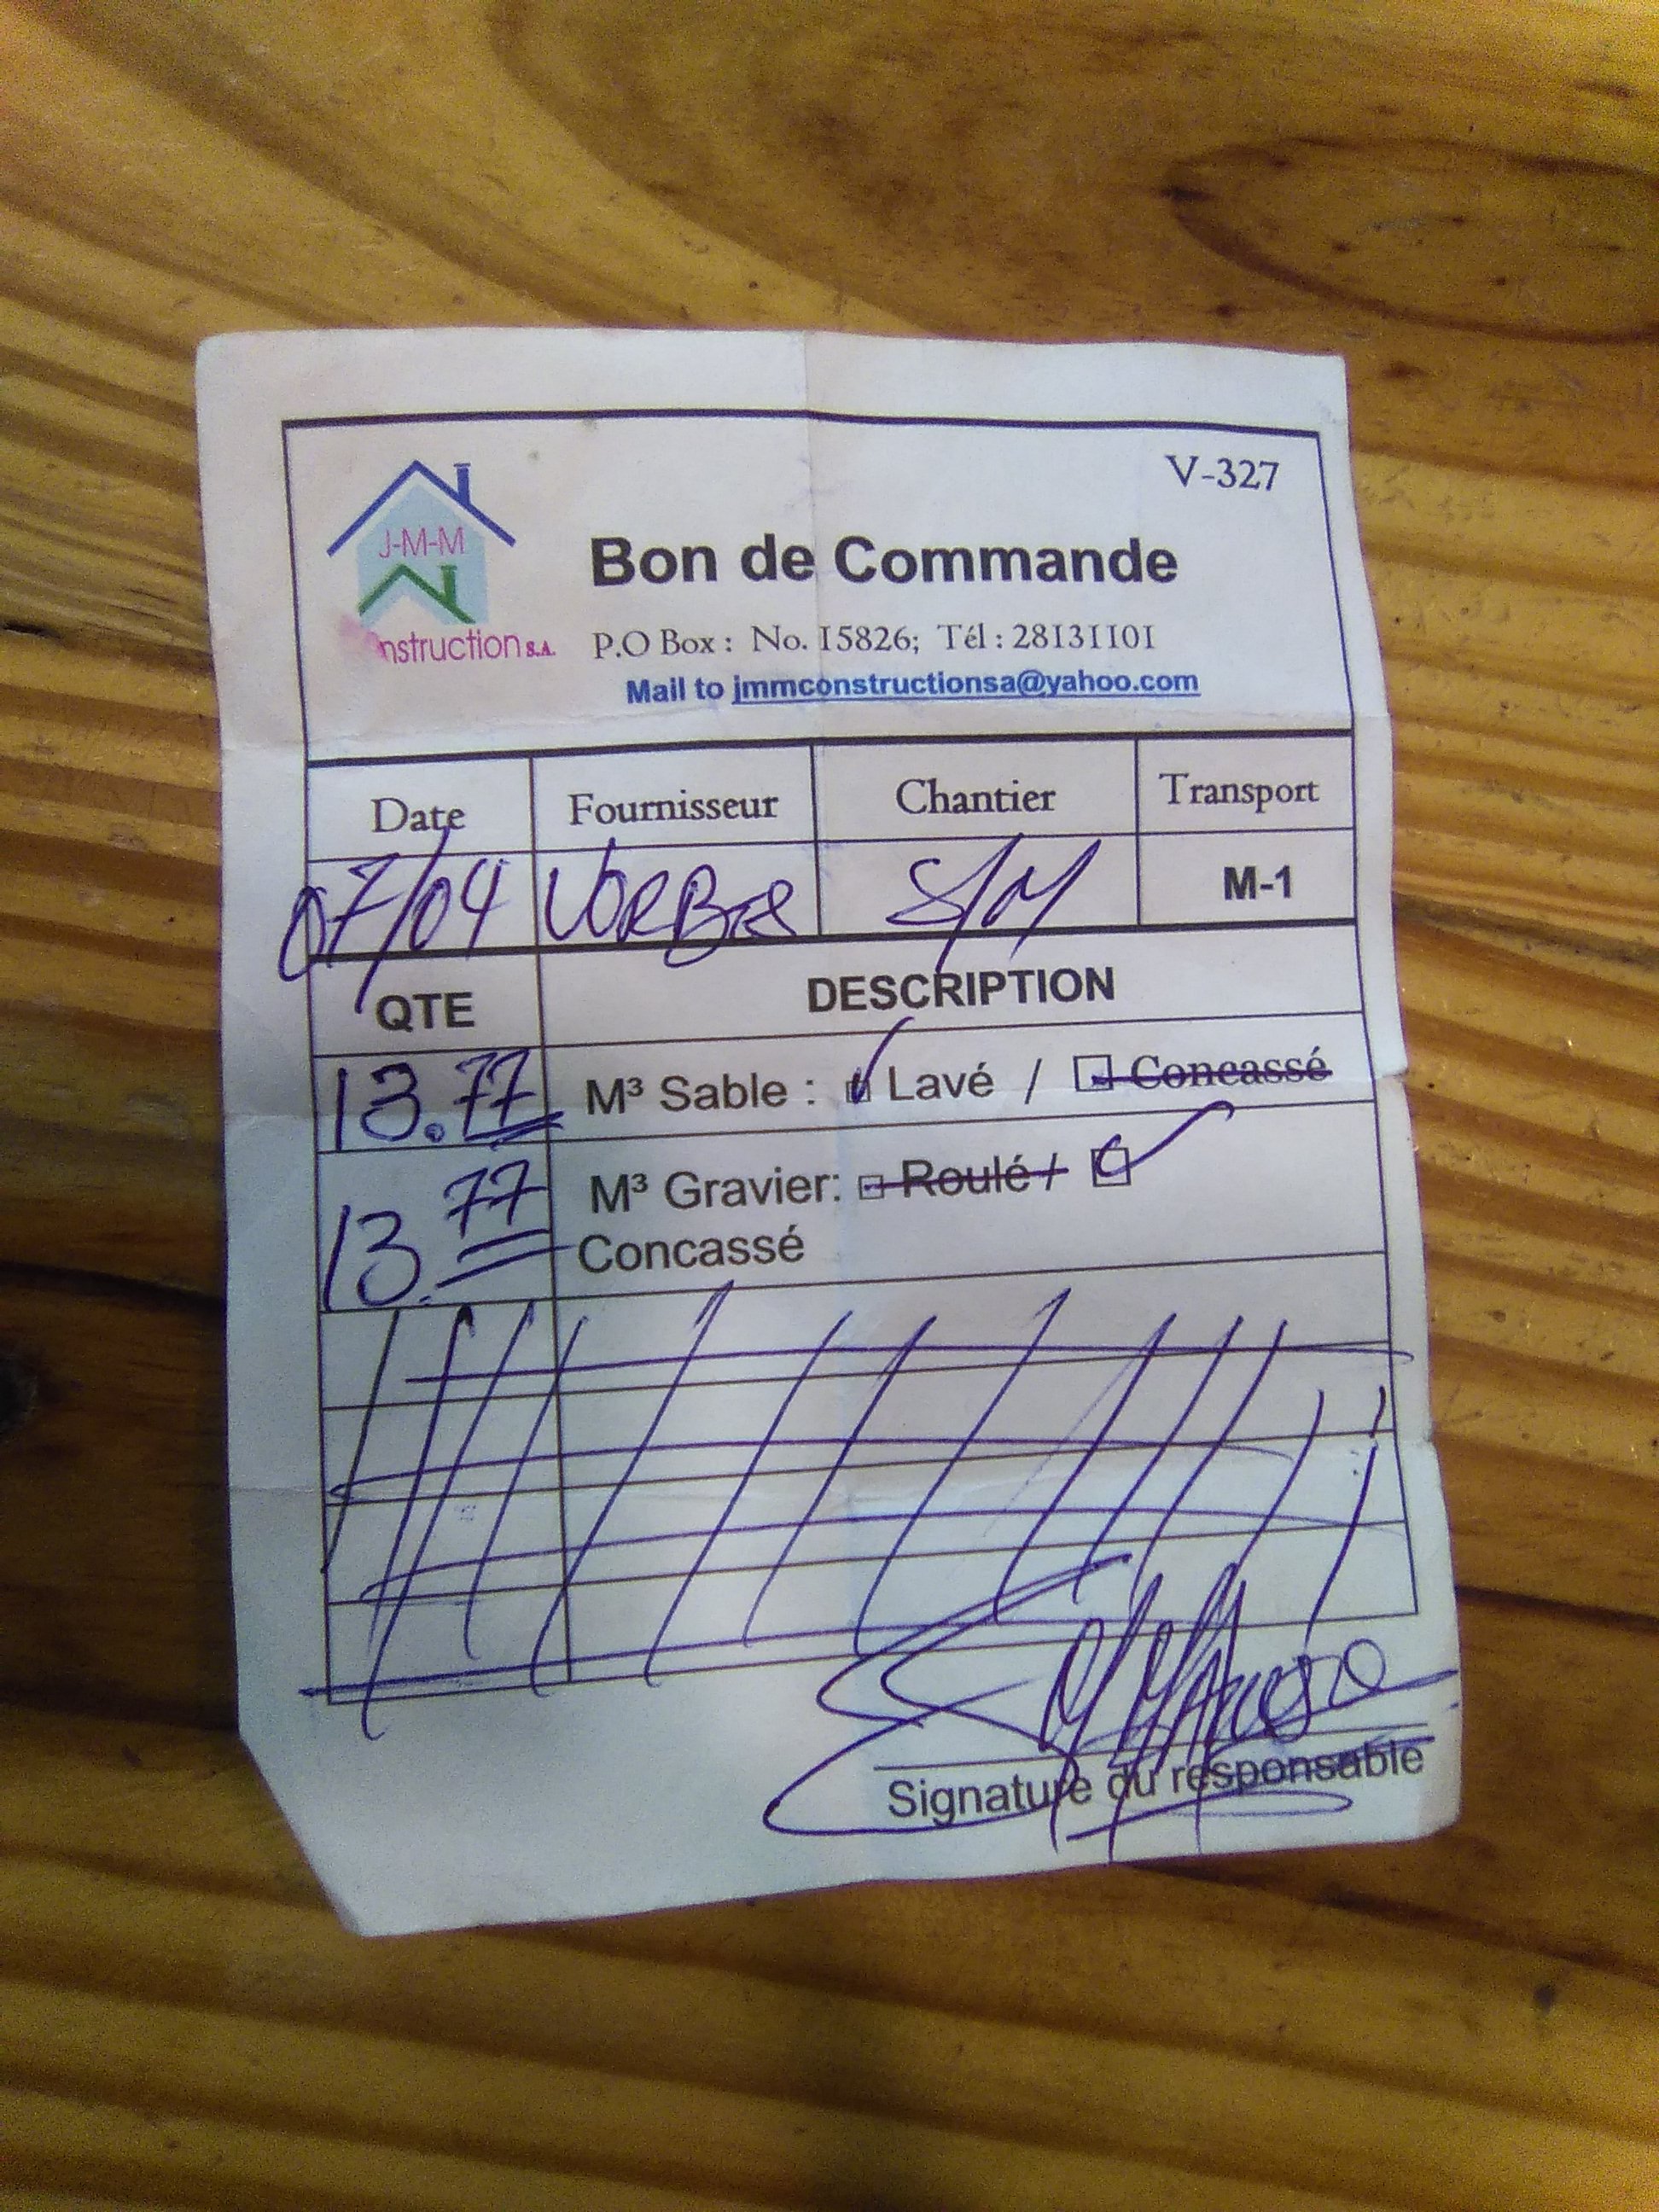 V-327
J-M-M
nstruction S.A.
Bon de Commande
P.O Box : No. 15826; Tél : 28131101
Mail to jmmconstructionsa@yahoo.com
Date Fournisseur Chantier Transport
07/04 S/M M-1
QTE DESCRIPTION
13.77 M³ Sable : Lavé / Concassé
13.77 M³ Gravier: Roulé /
Concassé
Signature du responsable